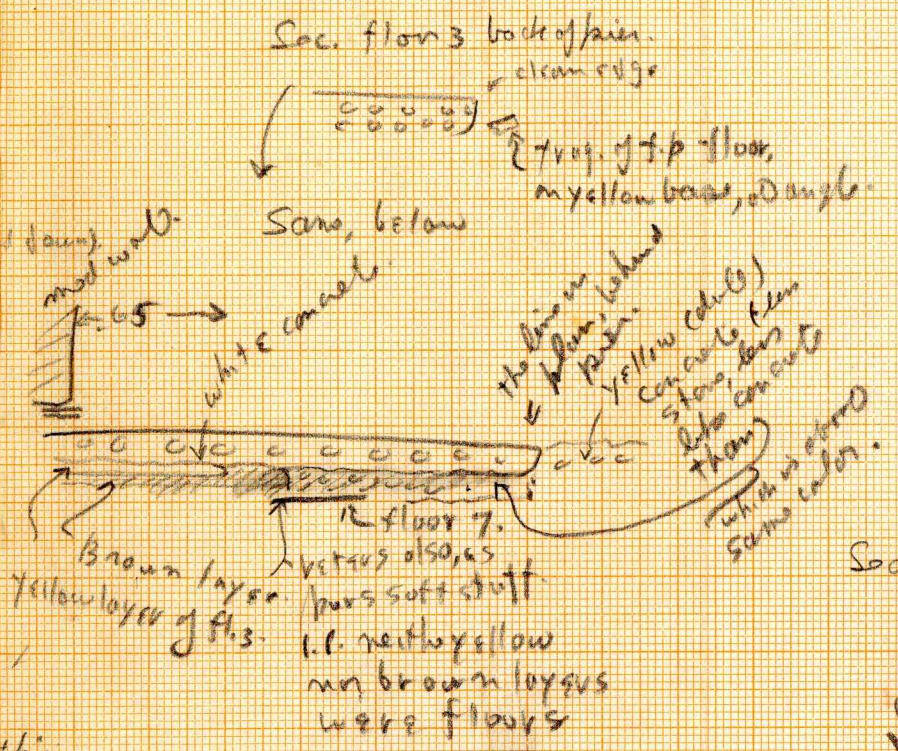 Sec. floor 3 back of pier.
clean edge
frag. of t.p floor,
on yellow base, at angle.
Same, below
mod wall.
.65
white concrete.
the line in
plan, behind
pier.
yellow (dull)
concrete (less
stone, less
like concrete
than)
which is about
same color.
floor 7.
Brown layer.
yellow layer of fl.3.
peters also, as
pure soft stuff
I.e. neither yellow
nor brown layers
were floors
Sec